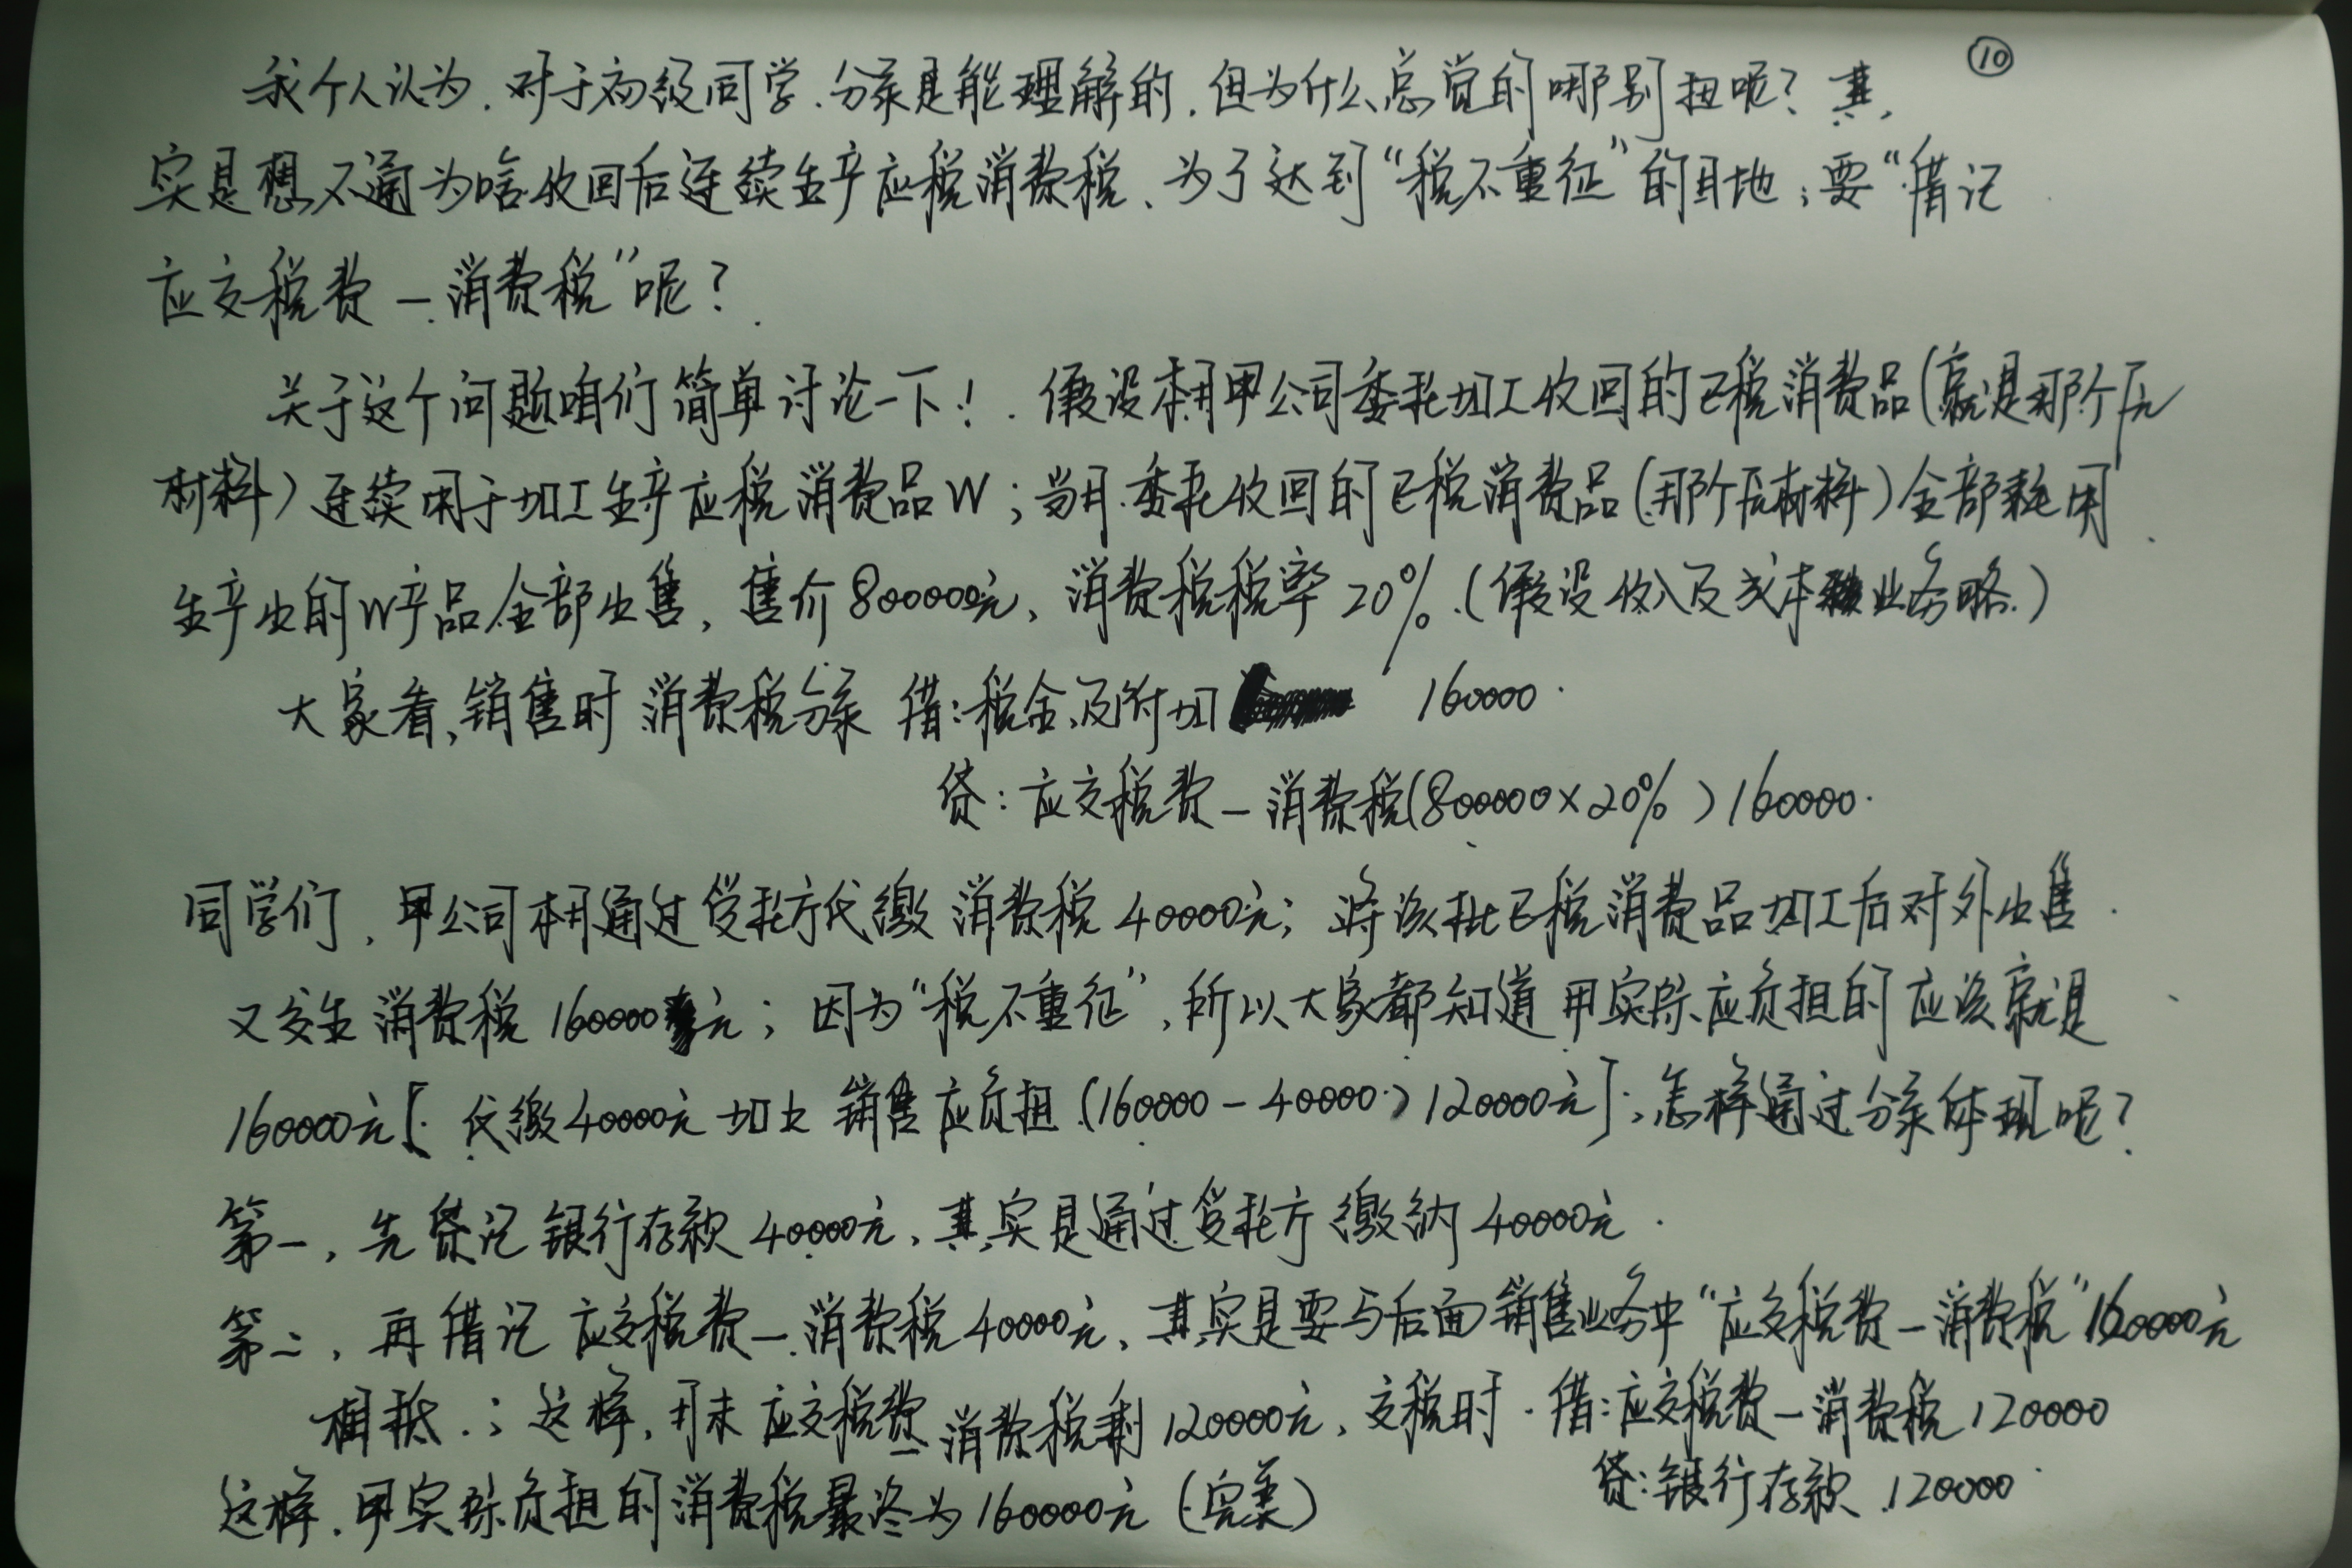 ⑩
我个人认为,对于初级同学,分录是能理解的,但为什么总觉的哪别扭呢?其
实是想不通为啥收回后连续生产应税消费税、为了达到“税不重征”的目地;要“借记
应交税费—消费税”呢?
关于这个问题咱们简单讨论一下!假设本月甲公司委托加工收回的已税消费品(就是那个原
材料)连续用于加工生产应税消费品W;当月委托收回的已税消费品(那个原材料)全部耗用
生产出的W产品全部出售,售价800000元,消费税税率20%.(假设收入及成本业务略.)
大家看,销售时消费税分录 借:税金及附加 160000
贷:应交税费—消费税(800000×20%)160000
同学们,甲公司本月通过受托方代缴消费税40000元;将该批已税消费品加工后对外出售
又发生消费税160000元;因为“税不重征”,所以大家都知道甲实际应负担的应该就是
160000元[代缴40000元加上销售应负担(160000-40000)120000元];怎样通过分录体现呢?
第一,先贷记银行存款40000元,其实是通过受托方缴纳40000元.
第二,再借记应交税费—消费税40000元,其实是要与后面销售业务中“应交税费—消费税”160000元
相抵.;这样,月末应交税费—消费税剩120000元,交税时.借:应交税费—消费税120000
贷:银行存款 120000
这样,甲实际负担的消费税最终为160000元(完美)